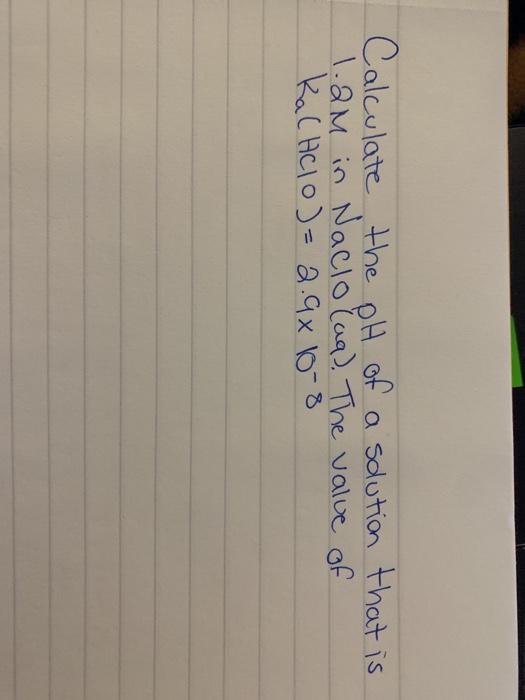 Calculate the pH of a solution that is
1.2M in NaClO(aq). The value of
Ka(HClO) = 2.9x10-8